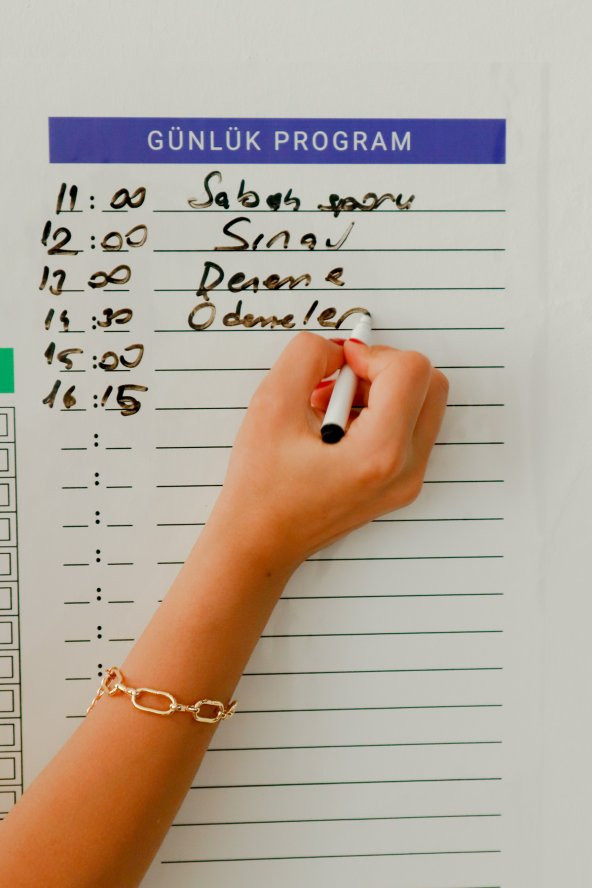 GÜNLÜK PROGRAM
11:00 Sabah sporu
12:00 Sınav
13 00 Deneme
14:30 Ödemeler
15:00
16:15